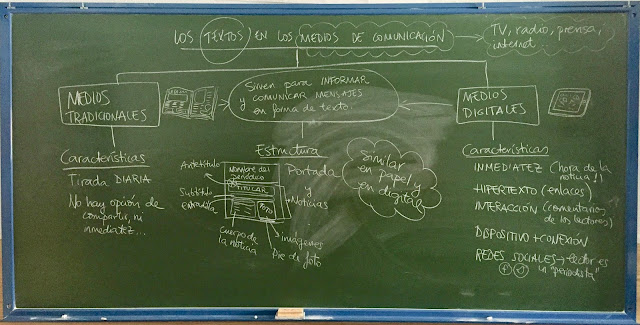 LOS TEXTOS EN LOS MEDIOS DE COMUNICACIÓN
TV, radio, prensa,
internet
MEDIOS
TRADICIONALES
Sirven para INFORMAR
y COMUNICAR MENSAJES
en forma de texto.
MEDIOS
DIGITALES
Características
TIRADA DIARIA
No hay opción de
compartir, ni
inmediatez...
Estructura
Antetítulo
Subtítulo
entradilla
Nombre del
periódico
TITULAR
FOTO
cuerpo de
la noticia
imágenes
Pie de foto
Portada
y
Noticias
Similar
en papel y
en digital
Características
INMEDIATEZ (hora de la
noticia!!)
HIPERTEXTO (enlaces)
INTERACCIÓN (comentarios
de los lectores)
DISPOSITIVO + CONEXIÓN
REDES SOCIALES → lector es
un "periodista"